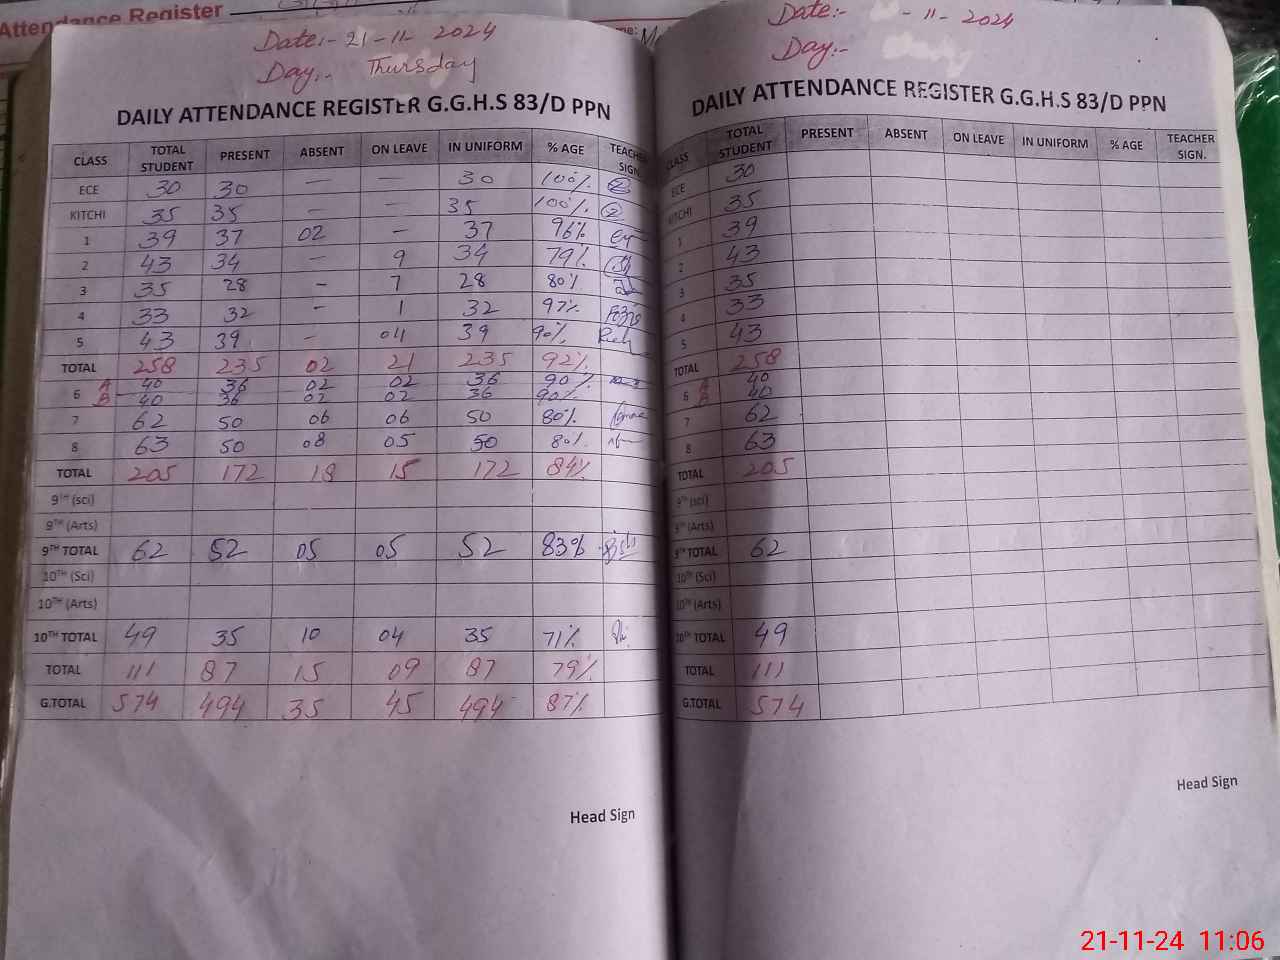 Attendance Register
Date:- 21-11-2024
Day:- Thursday
DAILY ATTENDANCE REGISTER G.G.H.S 83/D PPN
CLASS TOTAL STUDENT PRESENT ABSENT ON LEAVE IN UNIFORM % AGE TEACHER SIGN.
ECE 30 30 — — 30 100%
KITCHI 35 35 – – 35 100%
1 39 37 02 – 37 96%
2 43 34 – 9 34 79%
3 35 28 – 7 28 80%
4 33 32 – 1 32 97%
5 43 39 – 04 39 90%
TOTAL 258 235 02 21 235 92%
6 A 40 36 02 02 36 90%
B 40 36 02 02 36 90%
7 62 50 06 06 50 80%
8 63 50 08 05 50 80%
TOTAL 205 172 18 15 172 84%
9TH (sci)
9TH (Arts)
9TH TOTAL 62 52 05 05 52 83%
10TH (Sci)
10TH (Arts)
10TH TOTAL 49 35 10 04 35 71%
TOTAL 111 87 15 09 87 79%
G.TOTAL 574 494 35 45 494 87%
Head Sign
Date:- - 11 - 2024
Day:-
DAILY ATTENDANCE REGISTER G.G.H.S 83/D PPN
CLASS TOTAL STUDENT PRESENT ABSENT ON LEAVE IN UNIFORM % AGE TEACHER SIGN.
ECE 30
KITCHI 35
1 39
2 43
3 35
4 33
5 43
TOTAL 258
6 A 40
B 40
7 62
8 63
TOTAL 205
9TH (sci)
9TH (Arts)
9TH TOTAL 62
10TH (Sci)
10TH (Arts)
10TH TOTAL 49
TOTAL 111
G.TOTAL 574
Head Sign
21-11-24 11:06